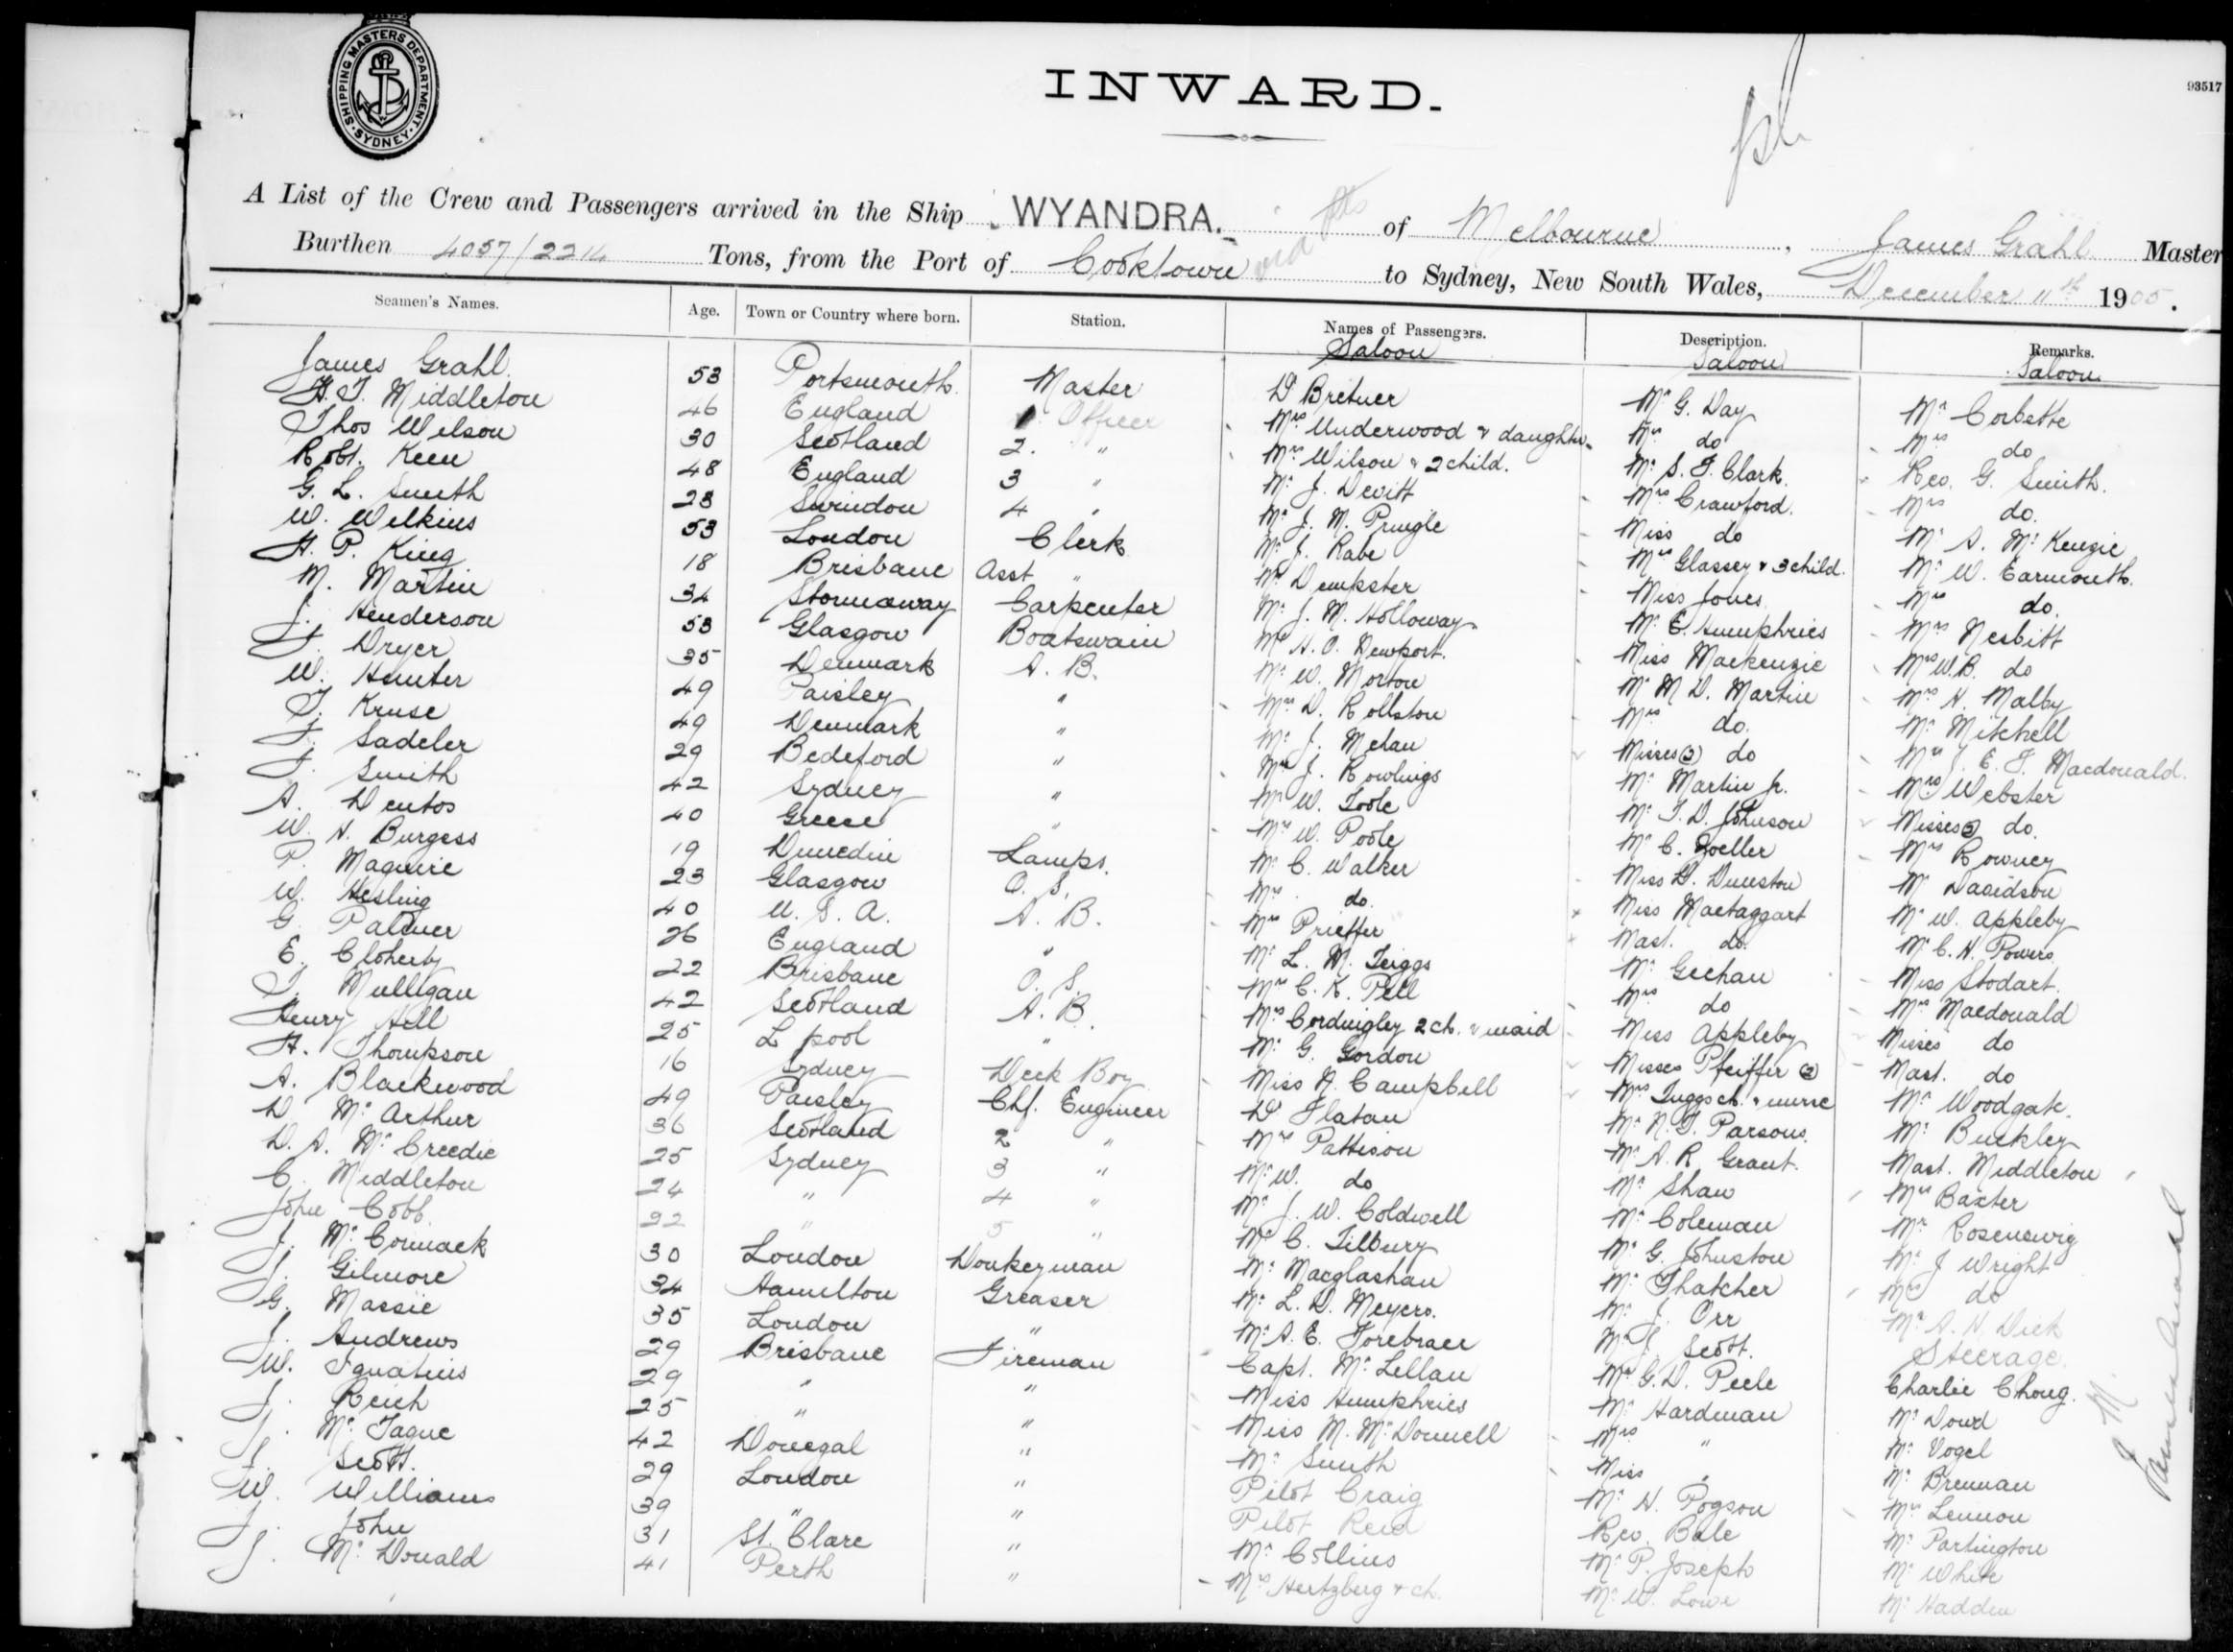 SHIPPING MASTERS DEPARTMENT. SYDNEY.
INWARD.
93517
A List of the Crew and Passengers arrived in the Ship WYANDRA. of Melbourne, James Grahl Master
Burthen 4057/2214 Tons, from the Port of Cooktown via pts to Sydney, New South Wales, December 11th 1905.
Seamen's Names. Age. Town or Country where born. Station. Names of Passengers. Description. Remarks.
Saloon Saloon Saloon
James Grahl. 53 Portsmouth Master Dr Bretner Mr G. Day Mr Corbette
H. T. Middleton 46 England 1 Officer Mrs Underwood & daughter Mrs do Mrs do
Thos Wilson 30 Scotland 2. " Mrs Wilson & 2 child. Mr S. F. Clark. Rev. G. Smith.
Robt. Keen 48 England 3 " Mr J. Devitt Mrs Crawford. Mrs do.
G. L. Smith 23 Swindon 4 " Mr J. M. Pringle Miss do Mr A. McKenzie
W. Wilkins 53 London Clerk Mr J. Rabe Mrs Glassey & 3 child. Mr W. Earmouth.
H. P. King 18 Brisbane Asst " Mr Dempster Miss Jones Mrs do.
M. Martin 34 Stornoway Carpenter Mr J. M. Holloway Mr E. Humphries Mrs Nesbitt
J. Henderson 53 Glasgow Boatswain Mr H. O. Newport. Miss Mackenzie Mrs W. B. do
J. Dryer 35 Denmark A. B. Mr W. Morton Mr M D. Martin Mrs H. Malby
W. Hunter 49 Paisley " Mrs D. Rollston Mrs do. Mr Mitchell
T. Kruse 49 Denmark " Mr J. Mehan Misses (3) do Mrs J. E. F. Macdonald.
J. Sadeler 29 Bedeford " Mrs J. Rowlings Mr Martin Jr. Mrs Webster
J. Smith 42 Sydney " Mr W. Toole Mr T. D. Johnson Misses (3) do.
A. Dentos 40 Greece " Mrs W. Poole Mr C. Zoeller Mrs Rowney
W. A. Burgess 19 Dunedin Lamps. Mr C. Walker Miss D. Dunston Mr Davidson
P. Maguire 23 Glasgow O. S. Mrs do. Miss Mactaggart Mr W. Appleby
W. Hesling 40 U. S. A. A. B. Mrs Prieffer Mast. do. Mr C. H. Powers
G. Palmer 26 England " Mr L. M. Triggs Mr Geehan Miss Stodart.
E. Cloherty 22 Brisbane O. S. Mrs C. K. Pell Mrs do Mrs Macdonald
T. Mulligan 42 Scotland A. B. Mrs Cordingley 2 ch. & maid Miss Appleby Misses do
Henry Hill 25 L pool " Mr G. Gordon Misses Pfeiffer (2) Mast. do
H. Thompson 16 Sydney Deck Boy Miss A. Campbell Mrs Triggs ch. & nurse Mr Woodgate.
A. Blackwood 49 Paisley Chf. Engineer Dr Flatau Mr N. F. Parsons. Mr Buckley
D McArthur 36 Scotland 2 " Mrs Pattison Mr A. R Grant. Mast. Middleton
D. A. McCreedie 25 Sydney 3 " Mr W. do Mr Shaw Mrs Baxter
C. Middleton 24 " 4 " Mr J. W. Coldwell Mr Coleman Mr Rosenswig
John Cobb 22 " 5 " Mr C. Tilbury Mr G. Johnston Mr J Wright
J. McCormack 30 London Donkeyman Mr Macglashan Mr Thatcher Mrs do
J. Gilmore 34 Hamilton Greaser Mr L. D. Meyers. Mr J. Orr Mr A. H. Dick
G. Massie 35 London " Mr A. E. Mr J. Scott. Steerage.
J. Andrews 29 Brisbane Fireman Capt. McLellan Mr G. D. Peele Charlie Choug.
W. Ignatius 29 " " Miss Humphries Mr Hardman Mr Dowd
J. Reich 25 " " Miss M. McDonnell Mrs " Mr Vogel
J. McTague 42 Donegal " Mr Smith Miss " Mr Brennan
J. Scott. 29 London " Pilot Craig Mr H. Pogson Mrs Lennon
W. Williams 39 " " Pilot Reid Rev. Bale Mr Partington
J. John 31 St. Clare " Mr Collins Mr P. Joseph Mr White
J. McDonald 41 Perth " Mrs Hertzberg & ch. Mr W. Lowe Mr Hadden